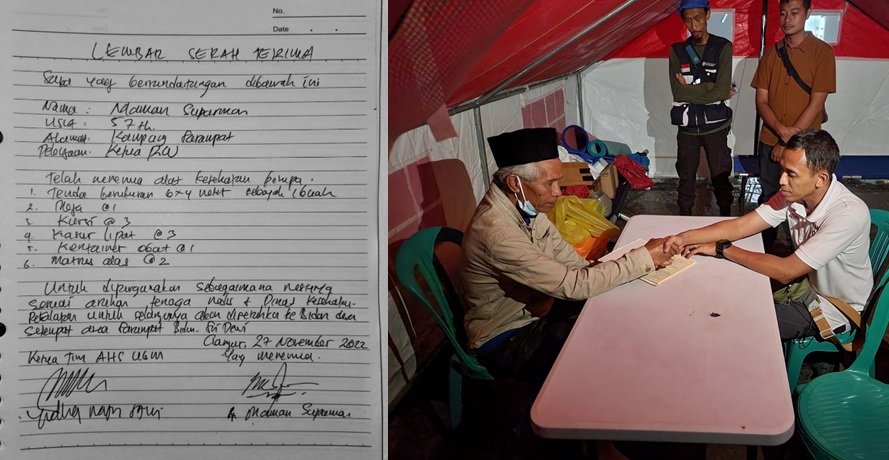 No.
Date
LEMBAR SERAH TERIMA
Saya yang bertandatangan dibawah ini
Nama : Maman Suparman
Usia : 57 th
Alamat : Kampung Parampat
Pekerjaan : Ketua RW
Telah menerima alat kesehatan berupa.
1. Tenda berukuran 6x4 meter sebanyak 1 buah
2. Meja @ 1
3 Kursi @ 3
4. Kasur lipat @ 3
5. Kontainer obat @ 1
6. Matras alas @ 2
Untuk dipergunakan sebagaimana mestinya
sesuai arahan tenaga medis + Dinas Kesehatan.
Peralatan untuk selanjutnya akan diserahkan ke Bidan desa
Setempat desa Parampat Bidan. Sri Dewi
Cianjur, 27 November 2022
Ketua Tim AHS UGM Yang menerima.
Maman Suparman